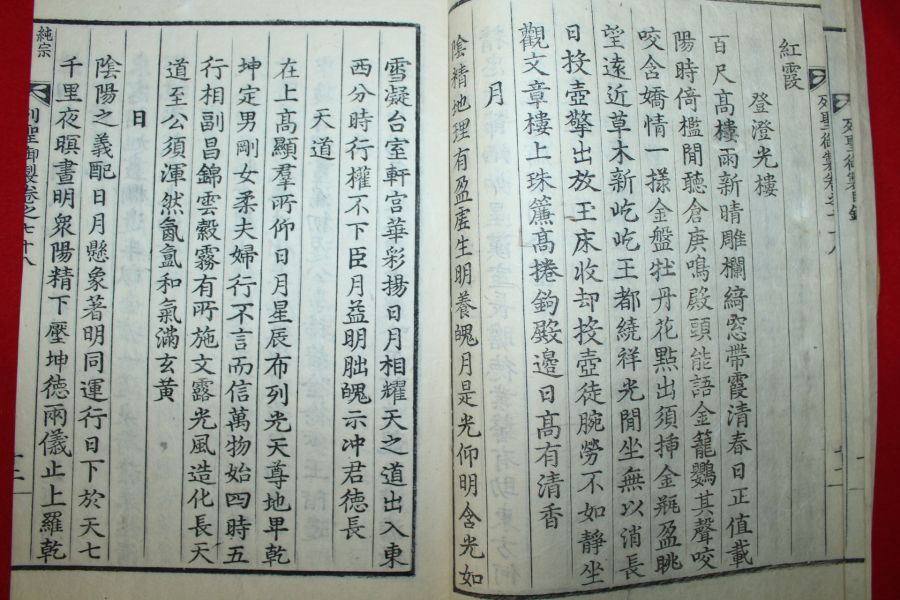 列聖御製目錄
列聖御製卷之七十八
紅霞
登澄光樓
百尺高樓雨新晴雕欄綺窓帶霞清春日正值載
陽時倚檻閒聽倉庚鳴殿頭能語金籠鸚其聲咬
咬含嬌情一㨾金盤牡丹花點出須揷金瓶盈眺
望遠近草木新屹屹王都繞祥光閒坐無以消長
日投壺擎出放玉床收却投壺徒腕勞不如靜坐
觀文章樓上珠簾高捲鉤殿邊日高有清香
月
陰精地理有盈虛生明養魄月是光仰明含光如
雪凝台室軒宮華彩揚日月相耀天之道出入東
西分時行權不下臣月益明朏魄示冲君德長
天道
在上高顯羣所仰日月星辰布列光天尊地卑乾
坤定男剛女柔夫婦行不言而信萬物始四時五
行相副昌錦雲縠霧有所施文露光風造化長天
道至公須渾然氤氳和氣滿玄黃
日
陰陽之義配日月懸象著明同運行日下於天七
千里夜暝書明衆陽精下壓坤德兩儀止上羅乾
純宗
列聖御製卷之七十八
十二